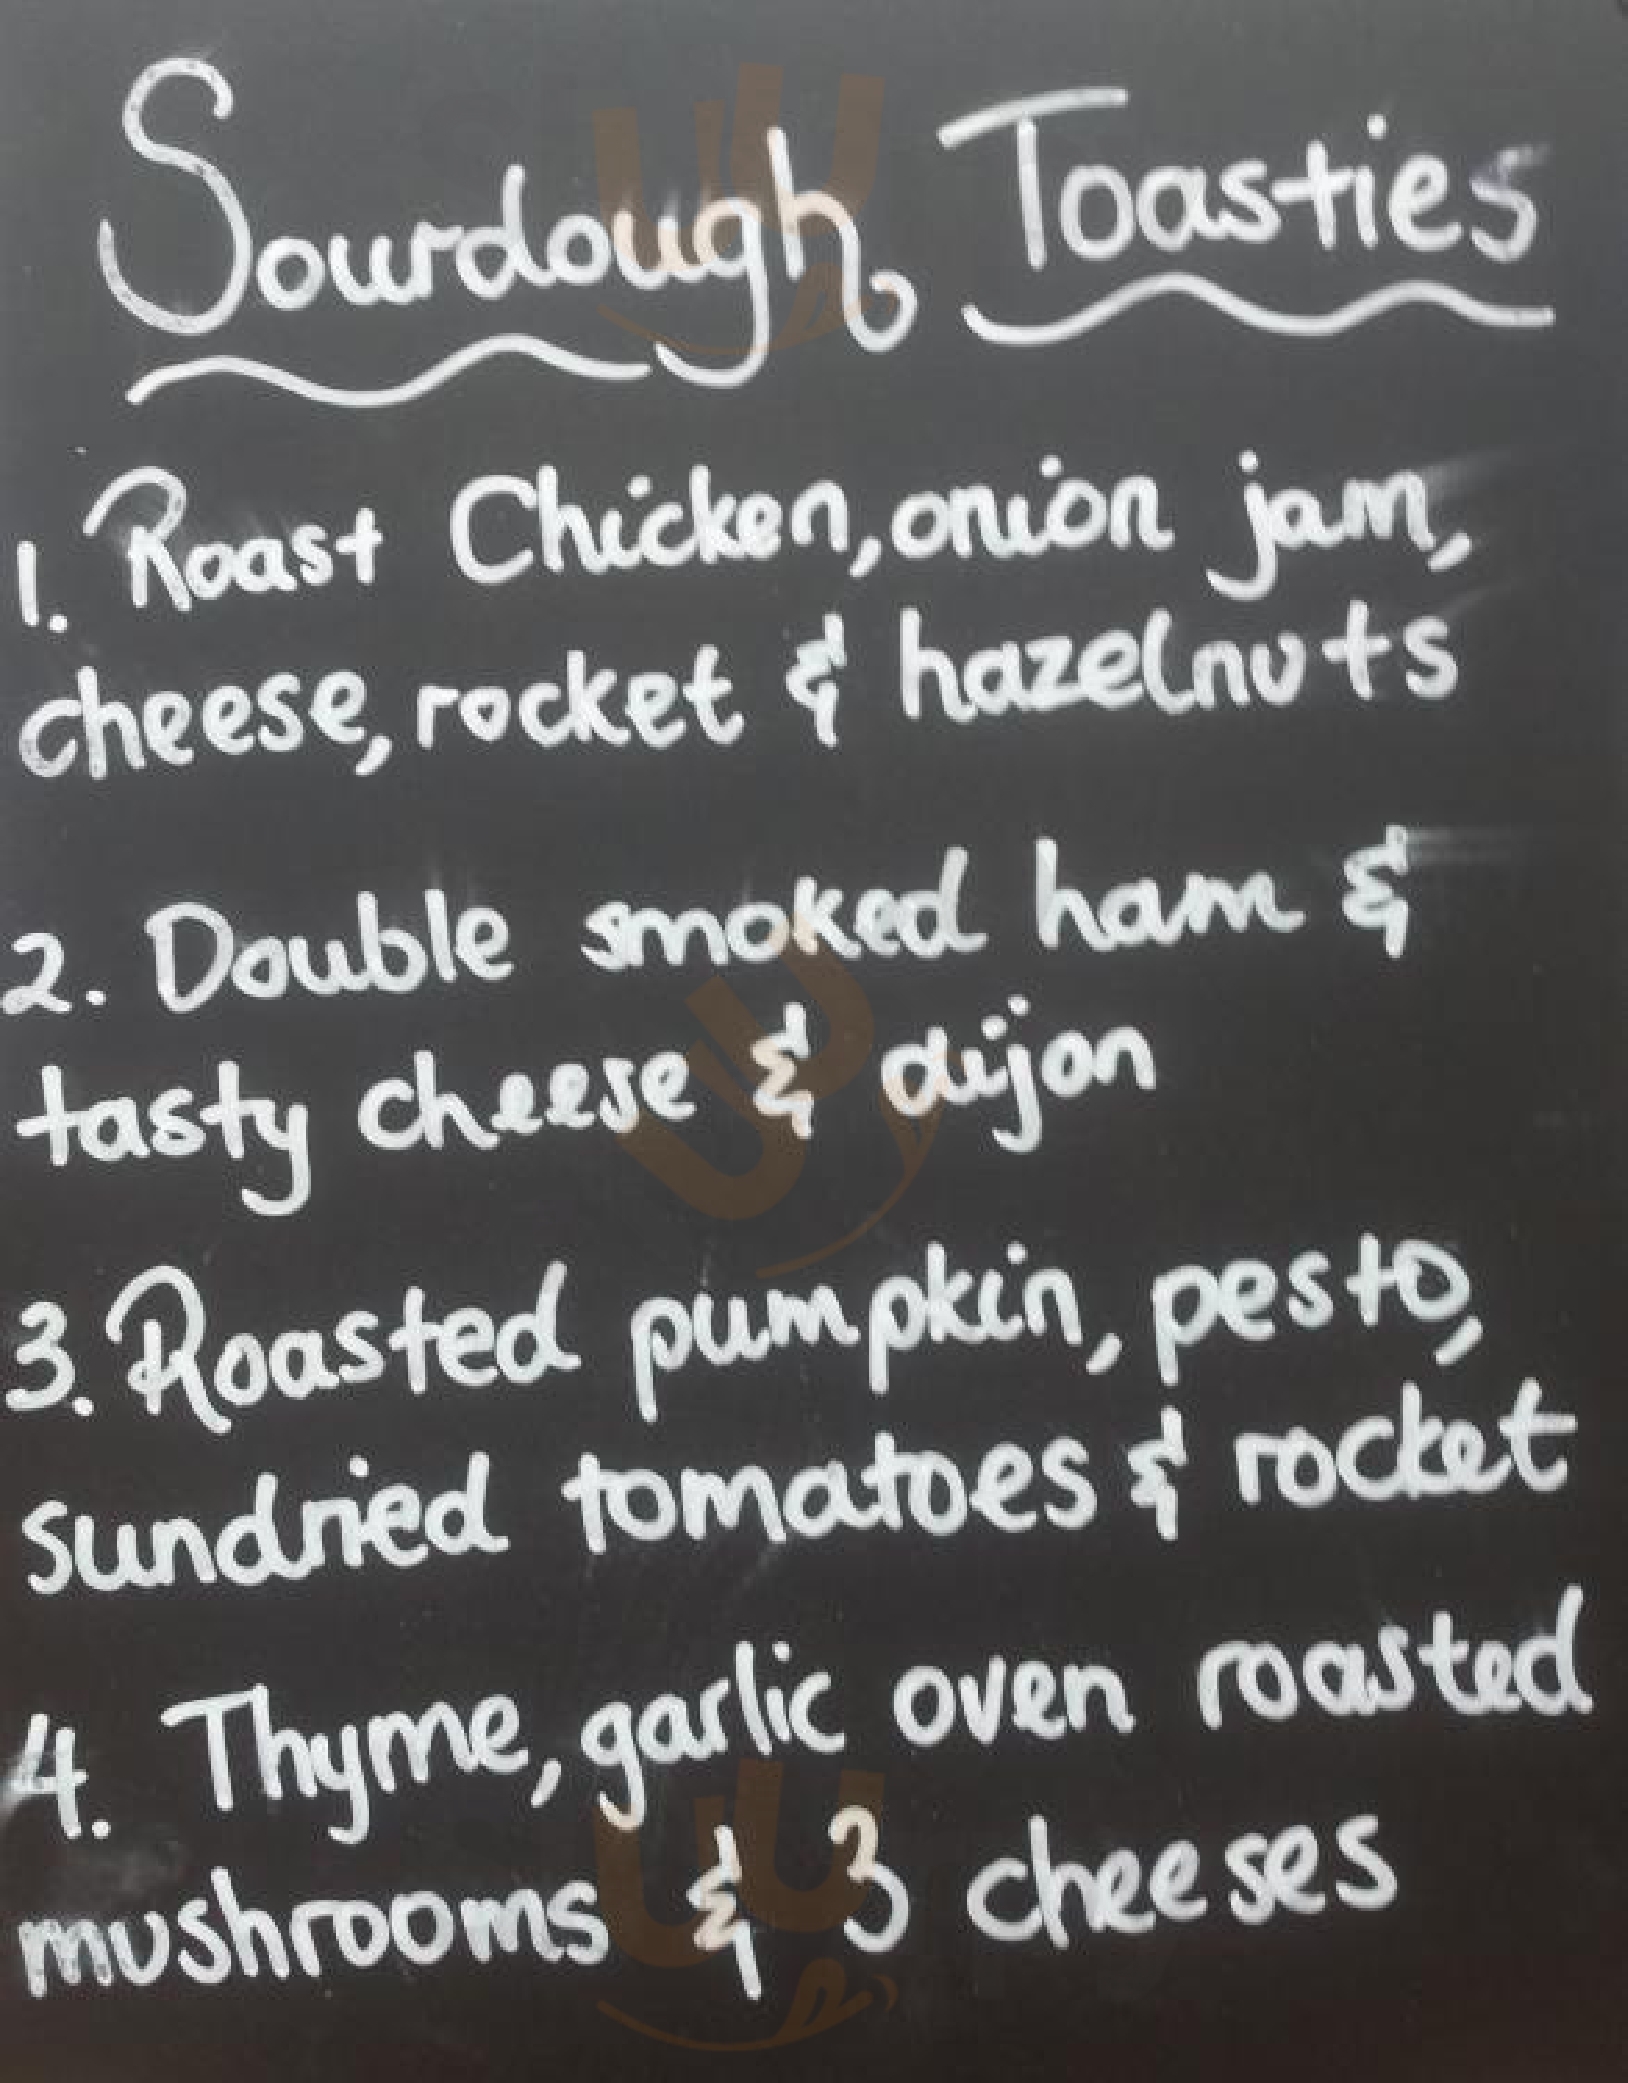 Sourdough Toasties
1. Roast Chicken, onion jam,
cheese, rocket & hazelnuts
2. Double smoked ham &
tasty cheese & dijon
3. Roasted pumpkin, pesto,
sundried tomatoes & rocket
4. Thyme, garlic oven roasted
mushrooms & 3 cheeses